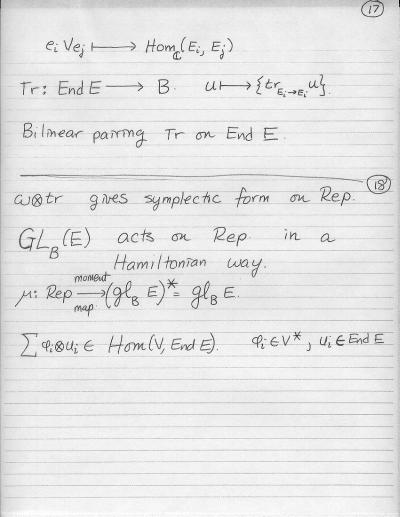 17
e_i V e_j ⟼ Hom_ℂ(E_i, E_j)
Tr: End E ⟶ B   u ⟼ {tr_{E_i→E_i} u}.
Bilinear pairing Tr on End E.
18
ω⊗tr gives symplectic form on Rep.
GL_B(E) acts on Rep. in a
Hamiltonian way.
μ: Rep ⟶ (gl_B E)* = gl_B E.
moment
map
∑ φ_i⊗u_i ∈ Hom(V, End E).   φ_i ∈ V*, u_i ∈ End E